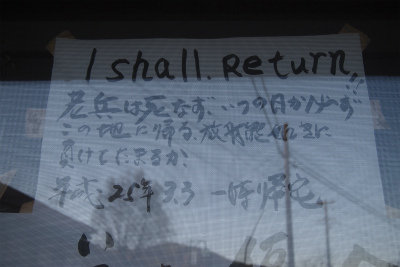 I shall. Return!!
老兵は死なず、いつの日か必ず
この地に帰る、放射能如きに
負けてたまるか、
平成25年3.3 一時帰宅
い